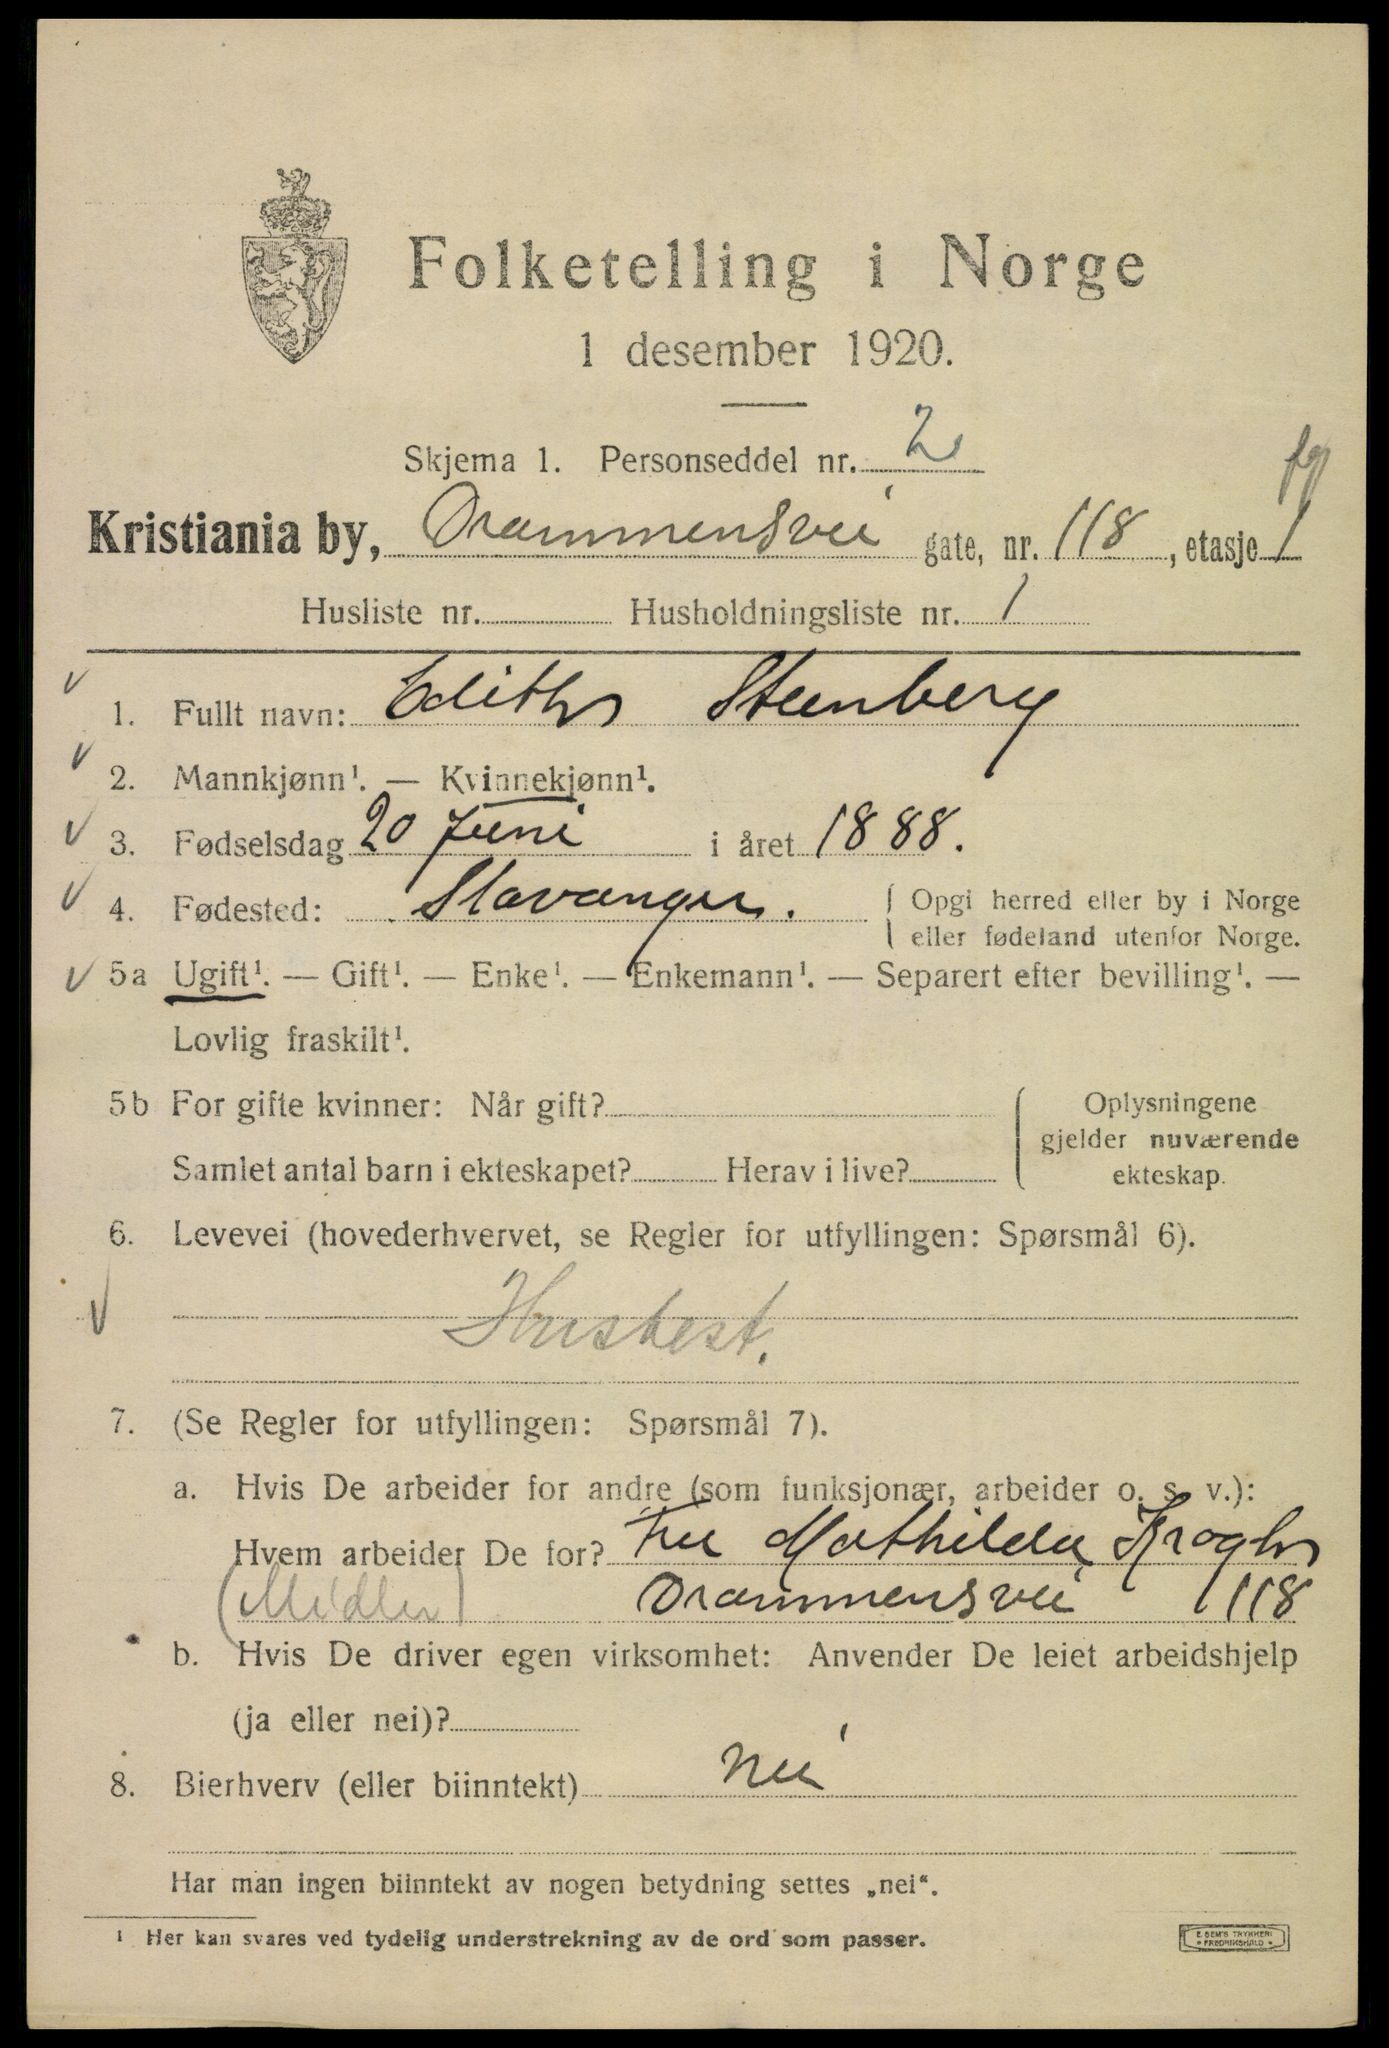 Folketelling i Norge
1 desember 1920.
Skjema 1. Personseddel nr. 2
Kristiania by, Drammensvei gate, nr. 118, etasje 1
Husliste nr. Husholdningsliste nr. 1
1. Fullt navn: Edith Steenberg
2. Mannkjønn¹. — Kvinnekjønn¹.
3. Fødselsdag 20 Juni i året 1888.
4. Fødested: Stavanger. Opgi herred eller by i Norge
eller fødeland utenfor Norge.
5a Ugift¹. — Gift¹. — Enke¹. — Enkemann¹. — Separert efter bevilling¹. —
Lovlig fraskilt¹.
5b For gifte kvinner: Når gift? Oplysningene
gjelder nuværende
Samlet antal barn i ekteskapet? Herav i live? ekteskap.
6. Levevei (hovederhvervet, se Regler for utfyllingen: Spørsmål 6).
Husbest.
7. (Se Regler for utfyllingen: Spørsmål 7).
a. Hvis De arbeider for andre (som funksjonær, arbeider o. s. v.):
Hvem arbeider De for? Fru Mathilde Krogh
(Midler) Drammensvei 118
b. Hvis De driver egen virksomhet: Anvender De leiet arbeidshjelp
(ja eller nei)?
8. Bierhverv (eller biinntekt) nei
Har man ingen biinntekt av nogen betydning settes „nei“.
¹ Her kan svares ved tydelig understrekning av de ord som passer.
E. SEM'S TRYKKERI
• FREDRIKSHALD •